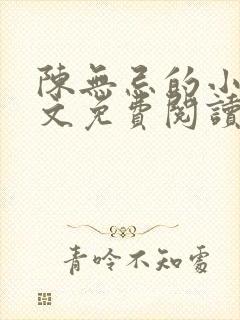 陳無忌的小
文免費閱讀
青呤不知處